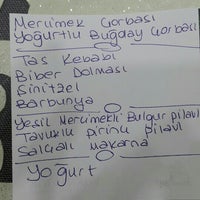 Mercimek Çorbası
Yoğurtlu Buğday Çorbası
Tas Kebabı
Biber Dolması
Şinitzel
Barbunya
Yeşil Mercimekli Bulgur pilavı
Tavuklu pirinç pilavı
Salçalı makarna
Yoğurt